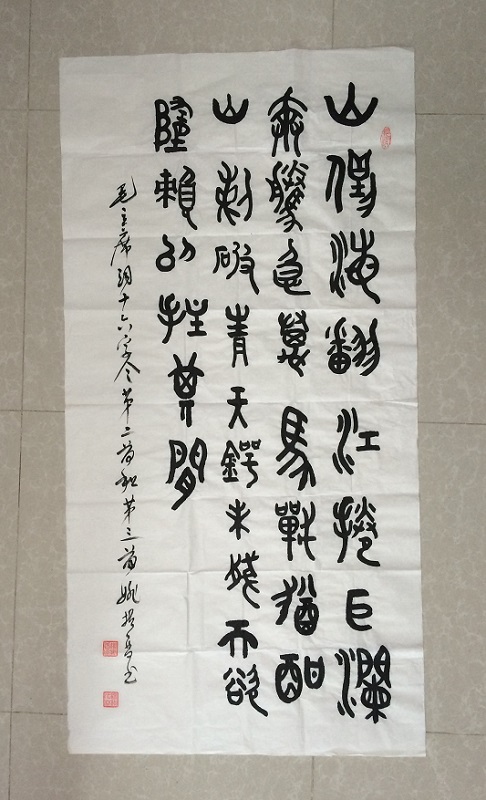 山倒海翻江捲巨瀾
奔騰急萬馬戰猶酣
山刺破青天鍔未殘天欲
墮賴以拄其間
毛主席詞十六字令第二首和第三首姚书